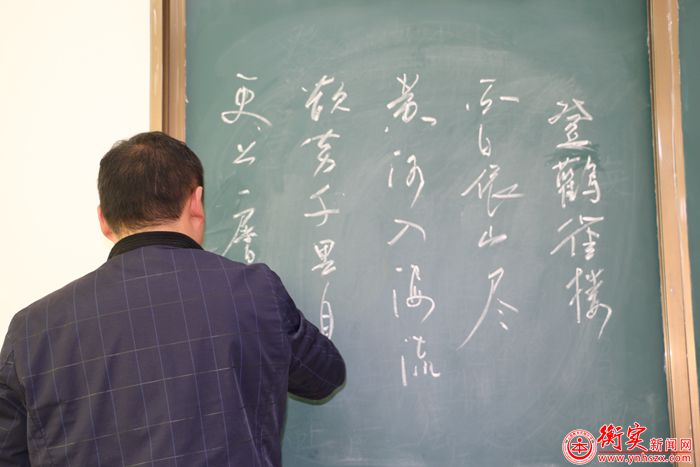 登鸛雀楼
白日依山尽
黄河入海流
欲穷千里目
更上一層
衡实新闻网
www.ynhszx.com